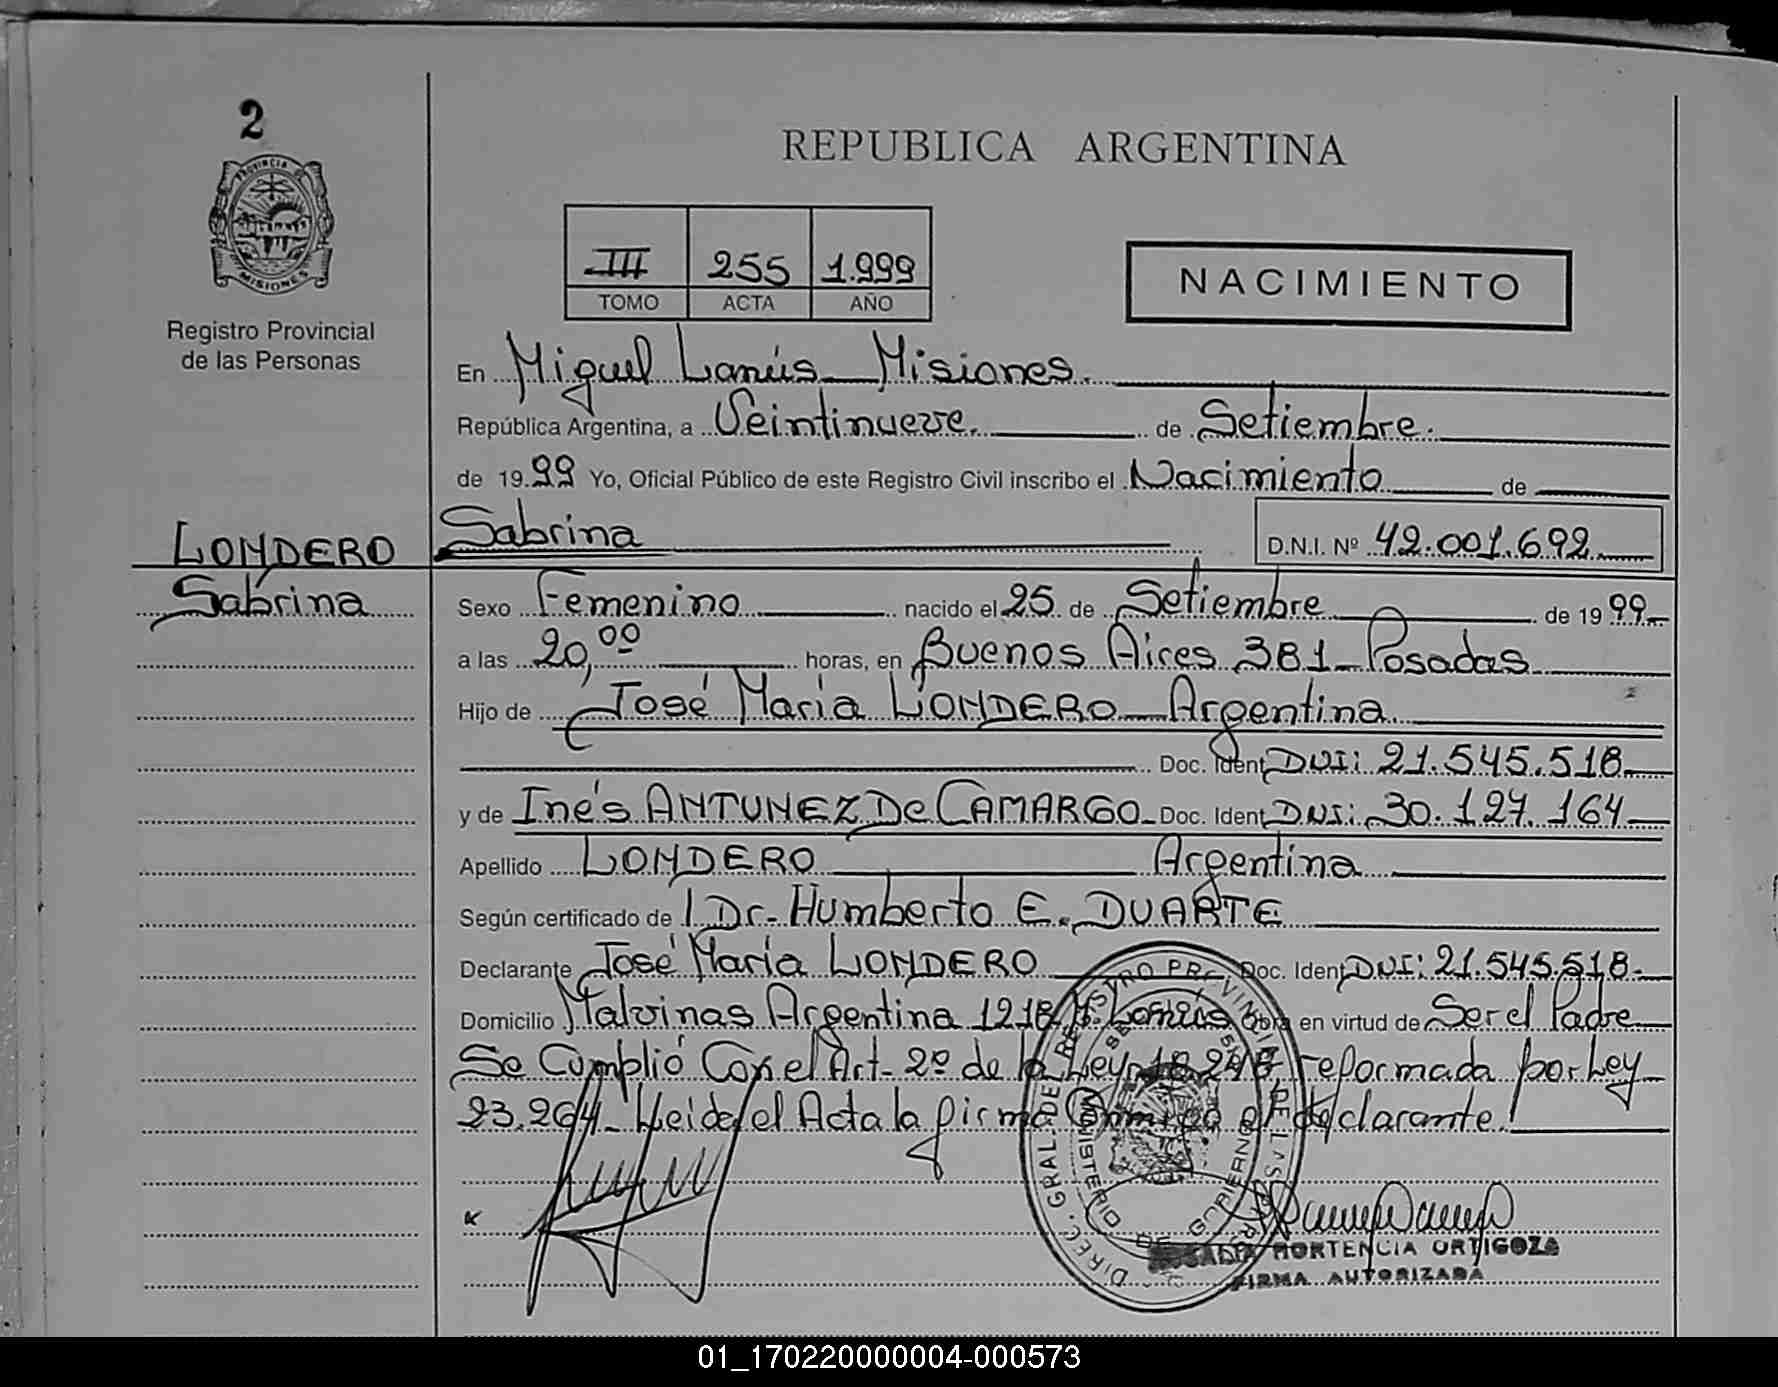 2
PROVINCIA DE
MISIONES
Registro Provincial
de las Personas
LONDERO
Sabrina
REPUBLICA ARGENTINA
III 255 1.999
TOMO ACTA AÑO
NACIMIENTO
En Miguel Lanús - Misiones.
República Argentina, a Veintinueve. de Setiembre.
de 1999 Yo, Oficial Público de este Registro Civil inscribo el Nacimiento de
Sabrina D.N.I. Nº 42.001.692
Sexo Femenino nacido el 25 de Setiembre de 1999
a las 20,00 horas, en Buenos Aires 381 - Posadas
Hijo de José María LONDERO - Argentina
Doc. Ident DNI: 21.545.518
y de Inés ANTUNEZ De CAMARGO - Doc. Ident DNI: 30.127.164
Apellido LONDERO Argentina
Según certificado de Dr. Humberto E. DUARTE
Declarante José María LONDERO Doc. Ident DNI: 21.545.518.
Domicilio Malvinas Argentina 1218 M. Lanús Obra en virtud de Ser el Padre
Se Cumplió Con el Art- 2º de la Ley 18.248 reformada por Ley
23.264 - Leida el Acta la firma Conmigo el declarante.
DIREC. GRAL DE REGISTRO PROVINCIAL DE LAS PERS
MINISTERIO DE GOBIERNO
HORTENCIA ORTIGOZA
FIRMA AUTORIZADA
01_170220000004-000573